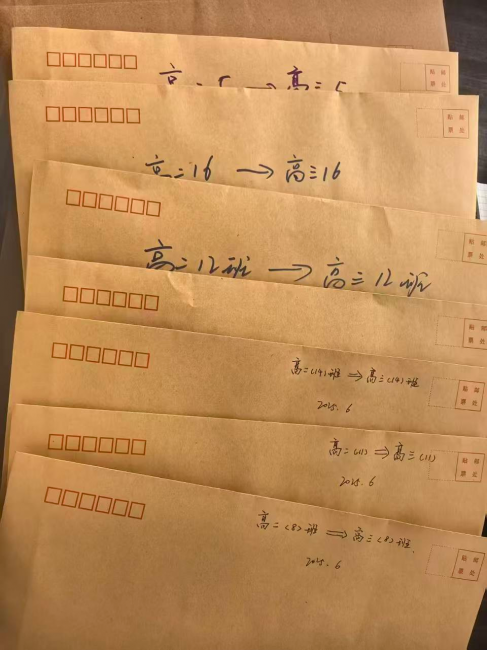 贴 邮
票 处
高二5 → 高三5
贴 邮
票 处
高二16 → 高三16
贴 邮
票 处
高二12班 → 高三12班
贴 邮
票 处
贴 邮
票 处
高二(14)班 ⇒ 高三(14)班
2025.6
贴 邮
票 处
高二(11) ⇒ 高三(11)
2025.6
贴 邮
票 处
高二(8)班 ⇒ 高三(8)班
2025.6